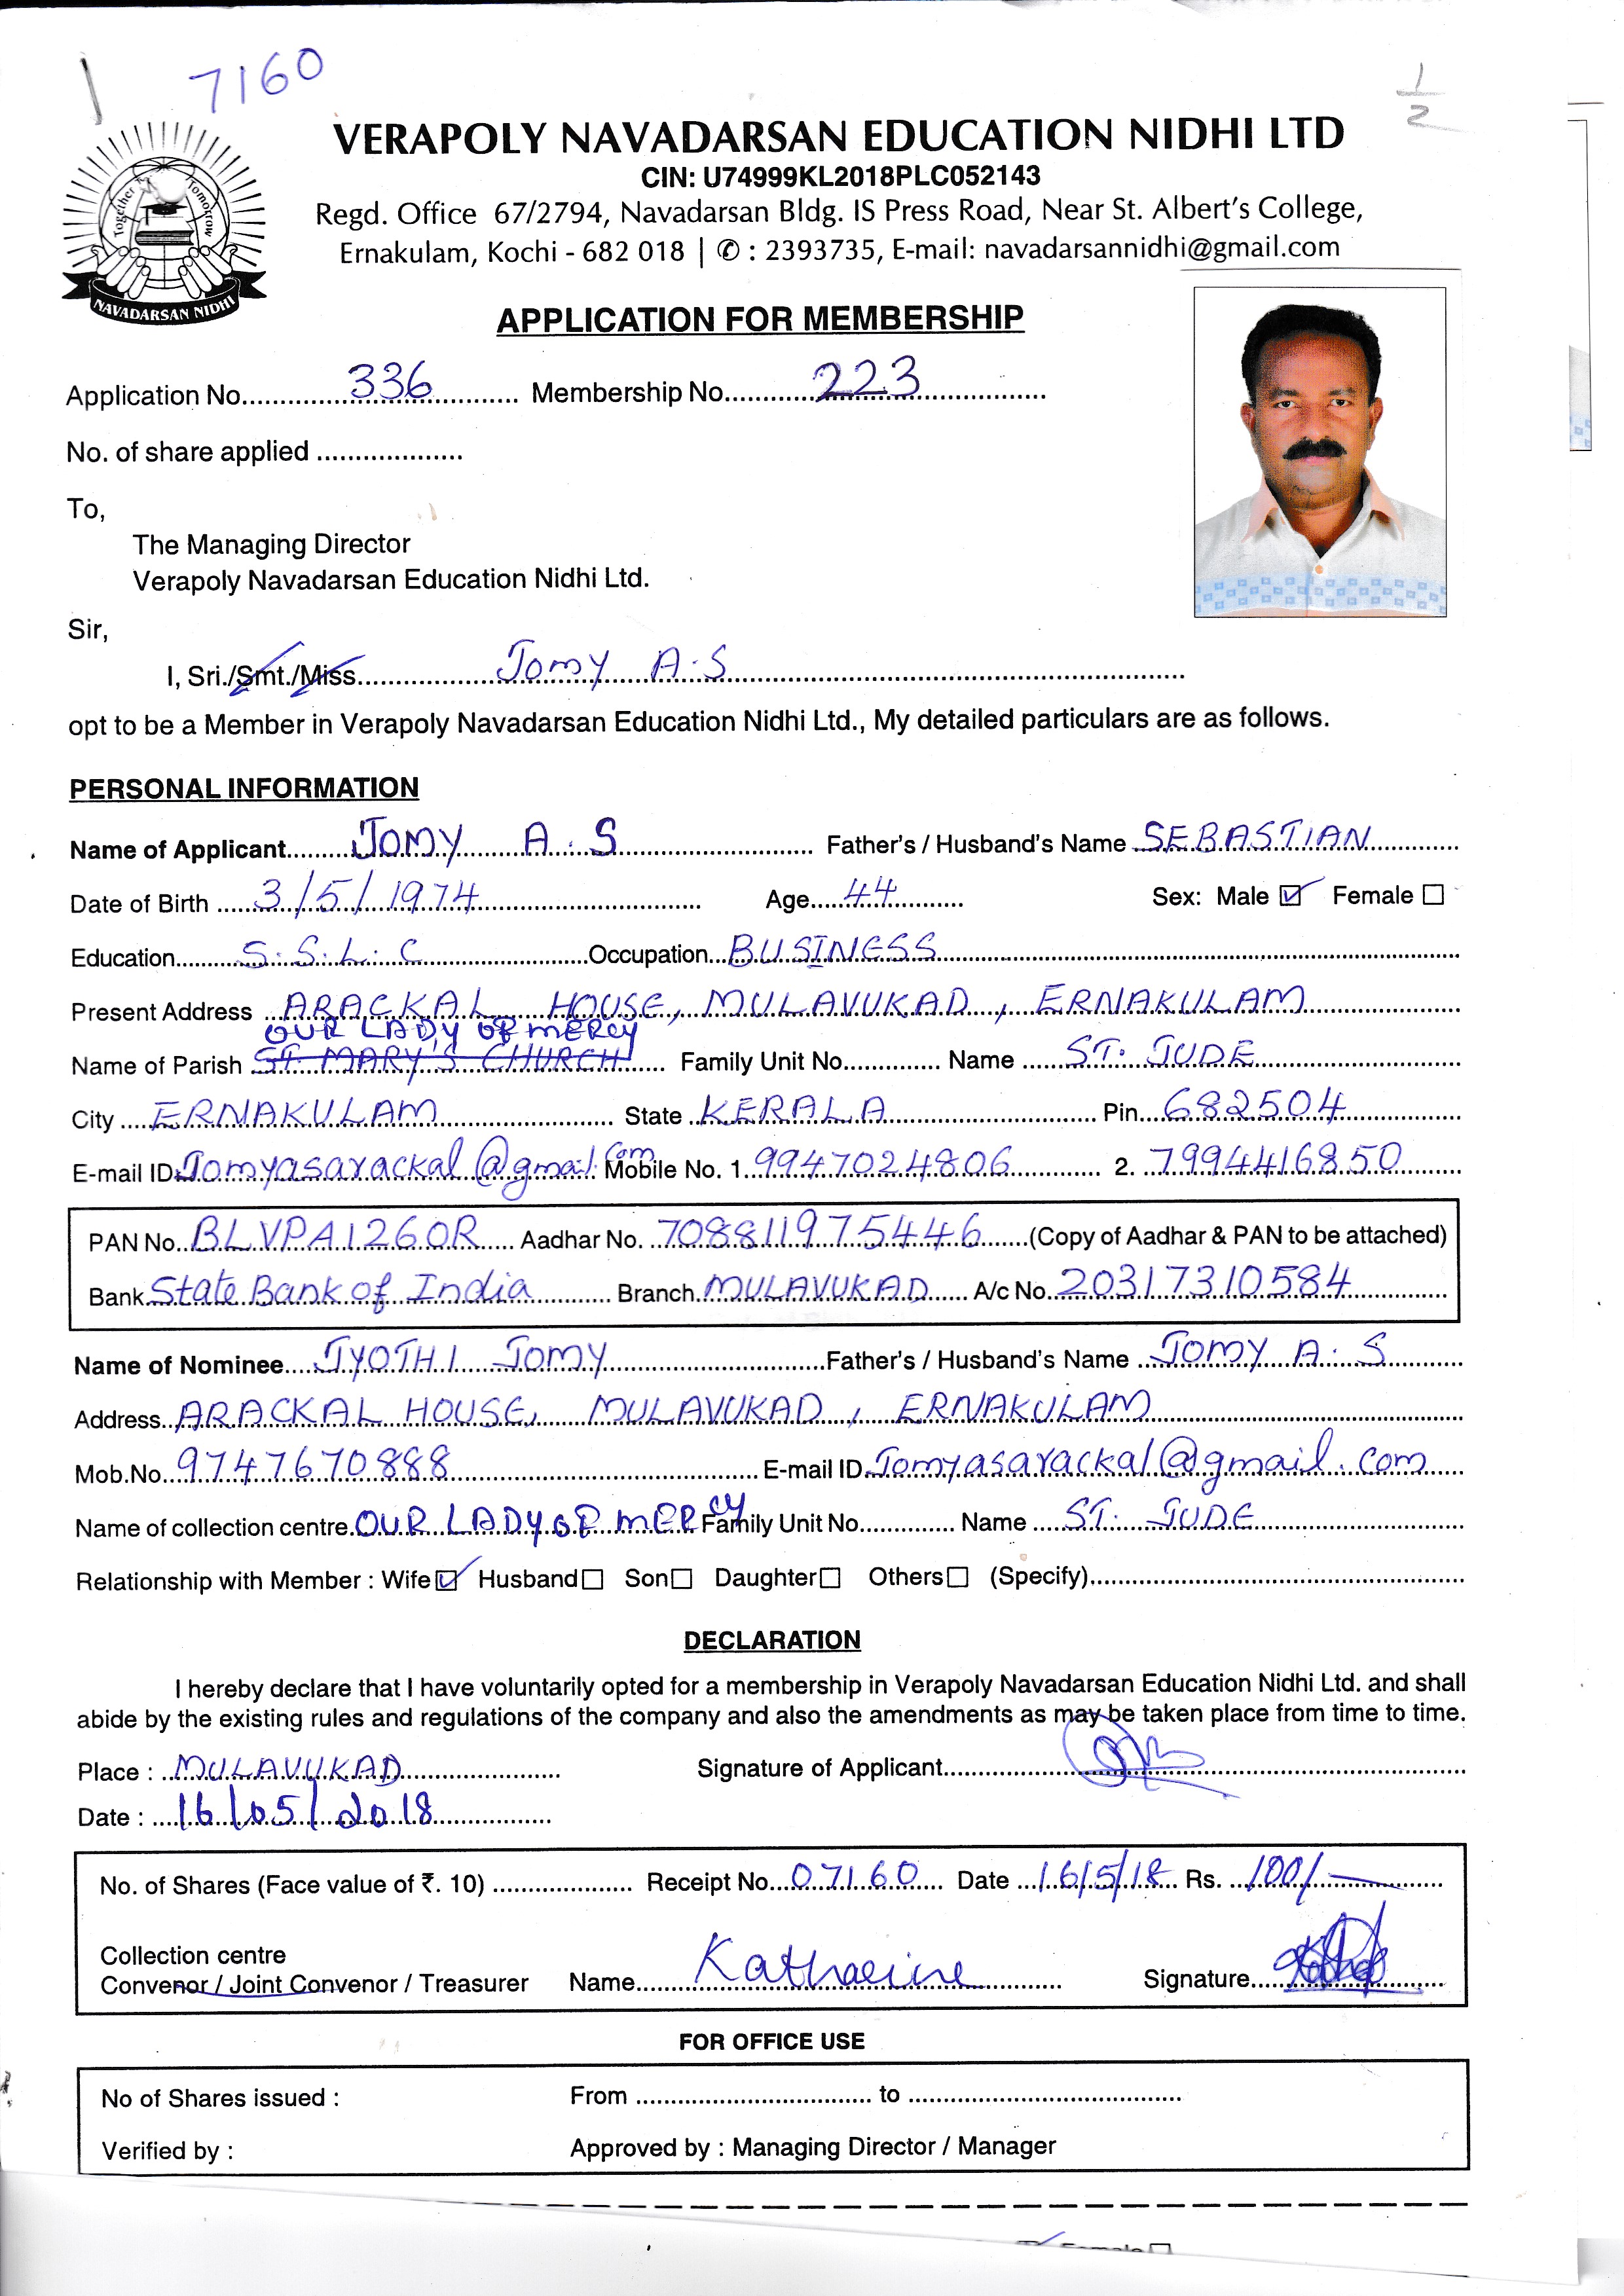 7160
1/2
VERAPOLY NAVADARSAN EDUCATION NIDHI LTD
CIN: U74999KL2018PLC052143
Regd. Office 67/2794, Navadarsan Bldg. IS Press Road, Near St. Albert's College,
Ernakulam, Kochi - 682 018 | ✆ : 2393735, E-mail: navadarsannidhi@gmail.com
Together Tomorrow
NAVADARSAN NIDHI
APPLICATION FOR MEMBERSHIP
Application No. 336 Membership No. 223
No. of share applied
To,
The Managing Director
Verapoly Navadarsan Education Nidhi Ltd.
Sir,
I, Sri./Smt./Miss. Jomy A.S
opt to be a Member in Verapoly Navadarsan Education Nidhi Ltd., My detailed particulars are as follows.
PERSONAL INFORMATION
Name of Applicant JOMY A.S Father's / Husband's Name SEBASTIAN
Date of Birth 3/5/1974 Age 44 Sex: Male ☑ Female ☐
Education S.S.L.C Occupation BUSINESS
Present Address ARACKAL HOUSE, MULAVUKAD, ERNAKULAM
OUR LADY OF MERCY
Name of Parish ST. MARY'S CHURCH Family Unit No. Name ST. JUDE
City ERNAKULAM State KERALA Pin 682504
E-mail ID Jomyasarackal@gmail.com Mobile No. 1. 9947024806 2. 7994416850
PAN No. BLVPA1260R Aadhar No. 708811975446 (Copy of Aadhar & PAN to be attached)
Bank State Bank of India Branch MULAVUKAD A/c No. 20317310584
Name of Nominee JYOTHI JOMY Father's / Husband's Name JOMY A.S
Address ARACKAL HOUSE, MULAVUKAD, ERNAKULAM
Mob.No. 9747670888 E-mail ID Jomyasarackal@gmail.com
Name of collection centre OUR LADY OF MERCY Family Unit No. Name ST. JUDE
Relationship with Member : Wife ☑ Husband ☐ Son ☐ Daughter ☐ Others ☐ (Specify)
DECLARATION
I hereby declare that I have voluntarily opted for a membership in Verapoly Navadarsan Education Nidhi Ltd. and shall
abide by the existing rules and regulations of the company and also the amendments as may be taken place from time to time.
Place : MULAVUKAD Signature of Applicant
Date : 16/05/2018
No. of Shares (Face value of ₹. 10) Receipt No. 07160 Date 16/5/18 Rs. 100/-
Collection centre
Convenor / Joint Convenor / Treasurer Name Katharine Signature
FOR OFFICE USE
No of Shares issued : From to
Verified by : Approved by : Managing Director / Manager